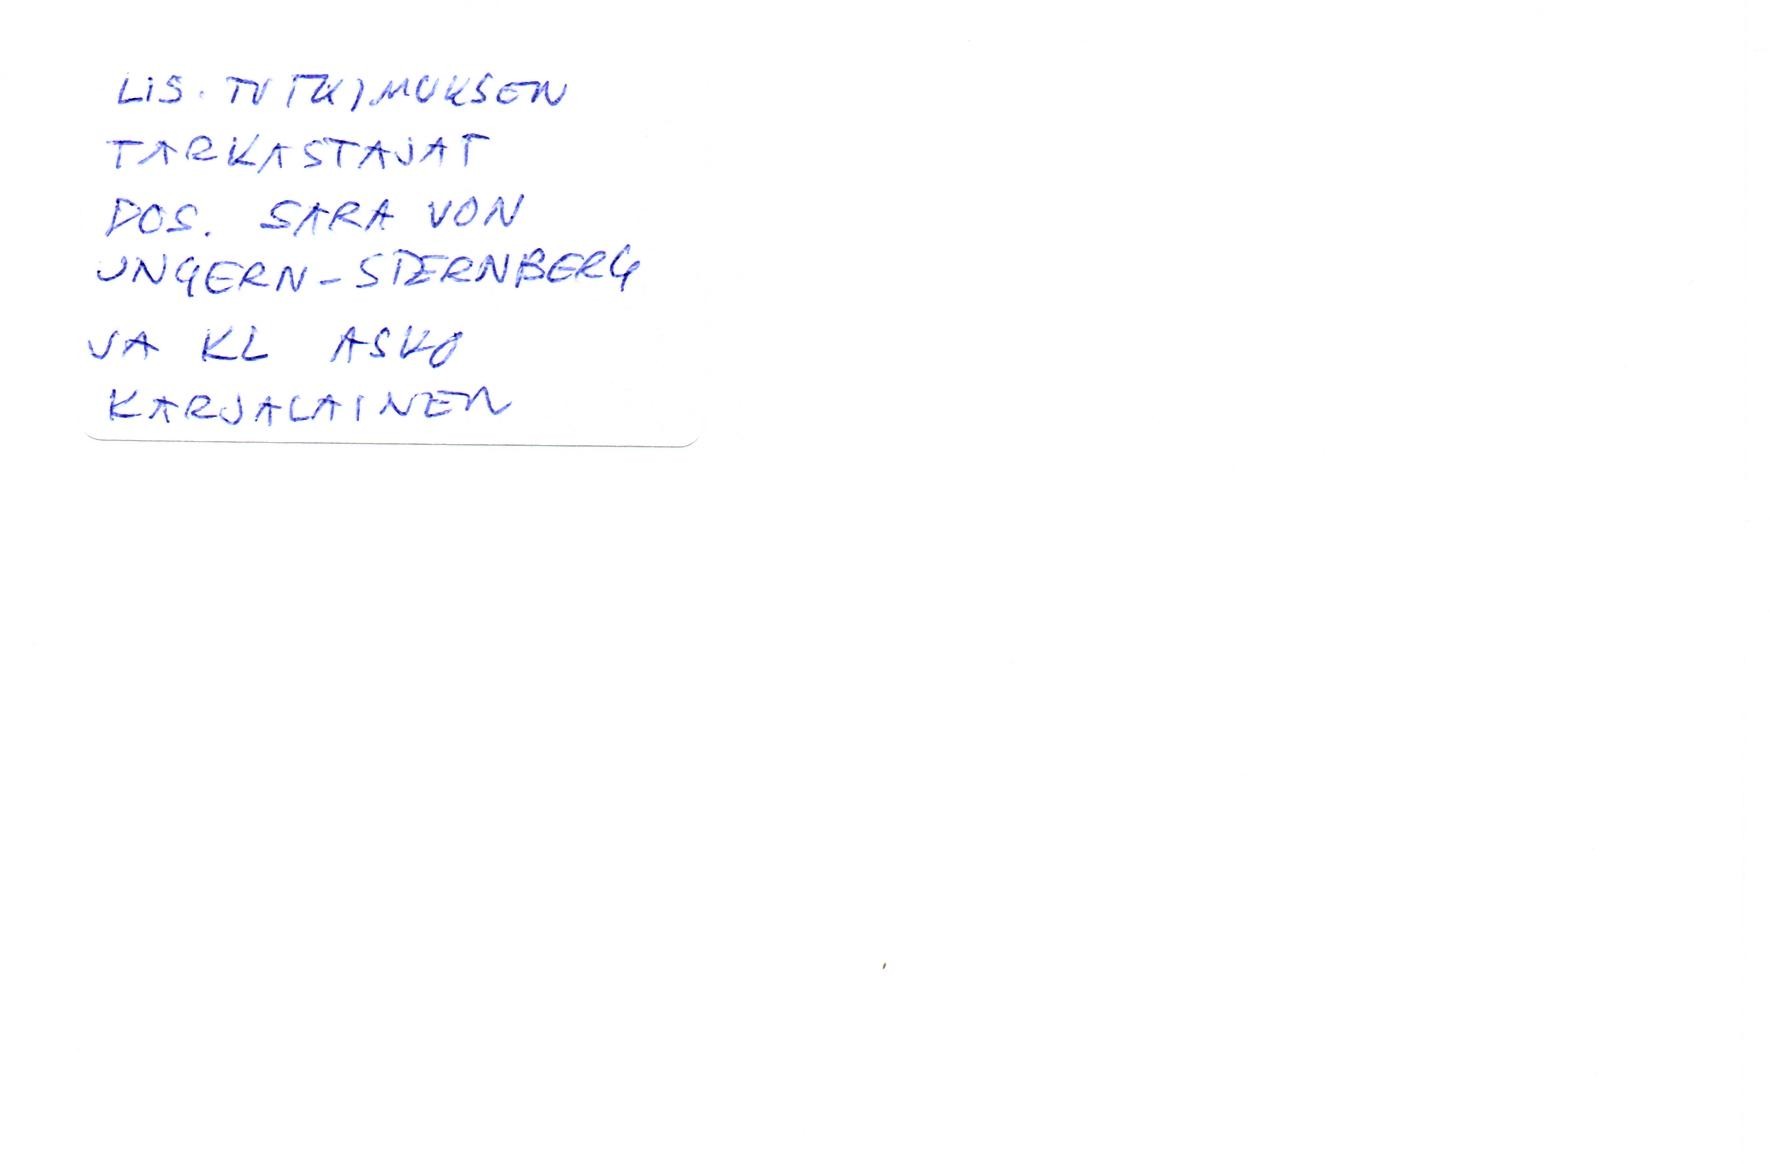 LIS. TUTKIMUKSEN
TARKASTAJAT
DOS. SARA VON
UNGERN-STERNBERG
JA KL ASKO
KARJALAINEN